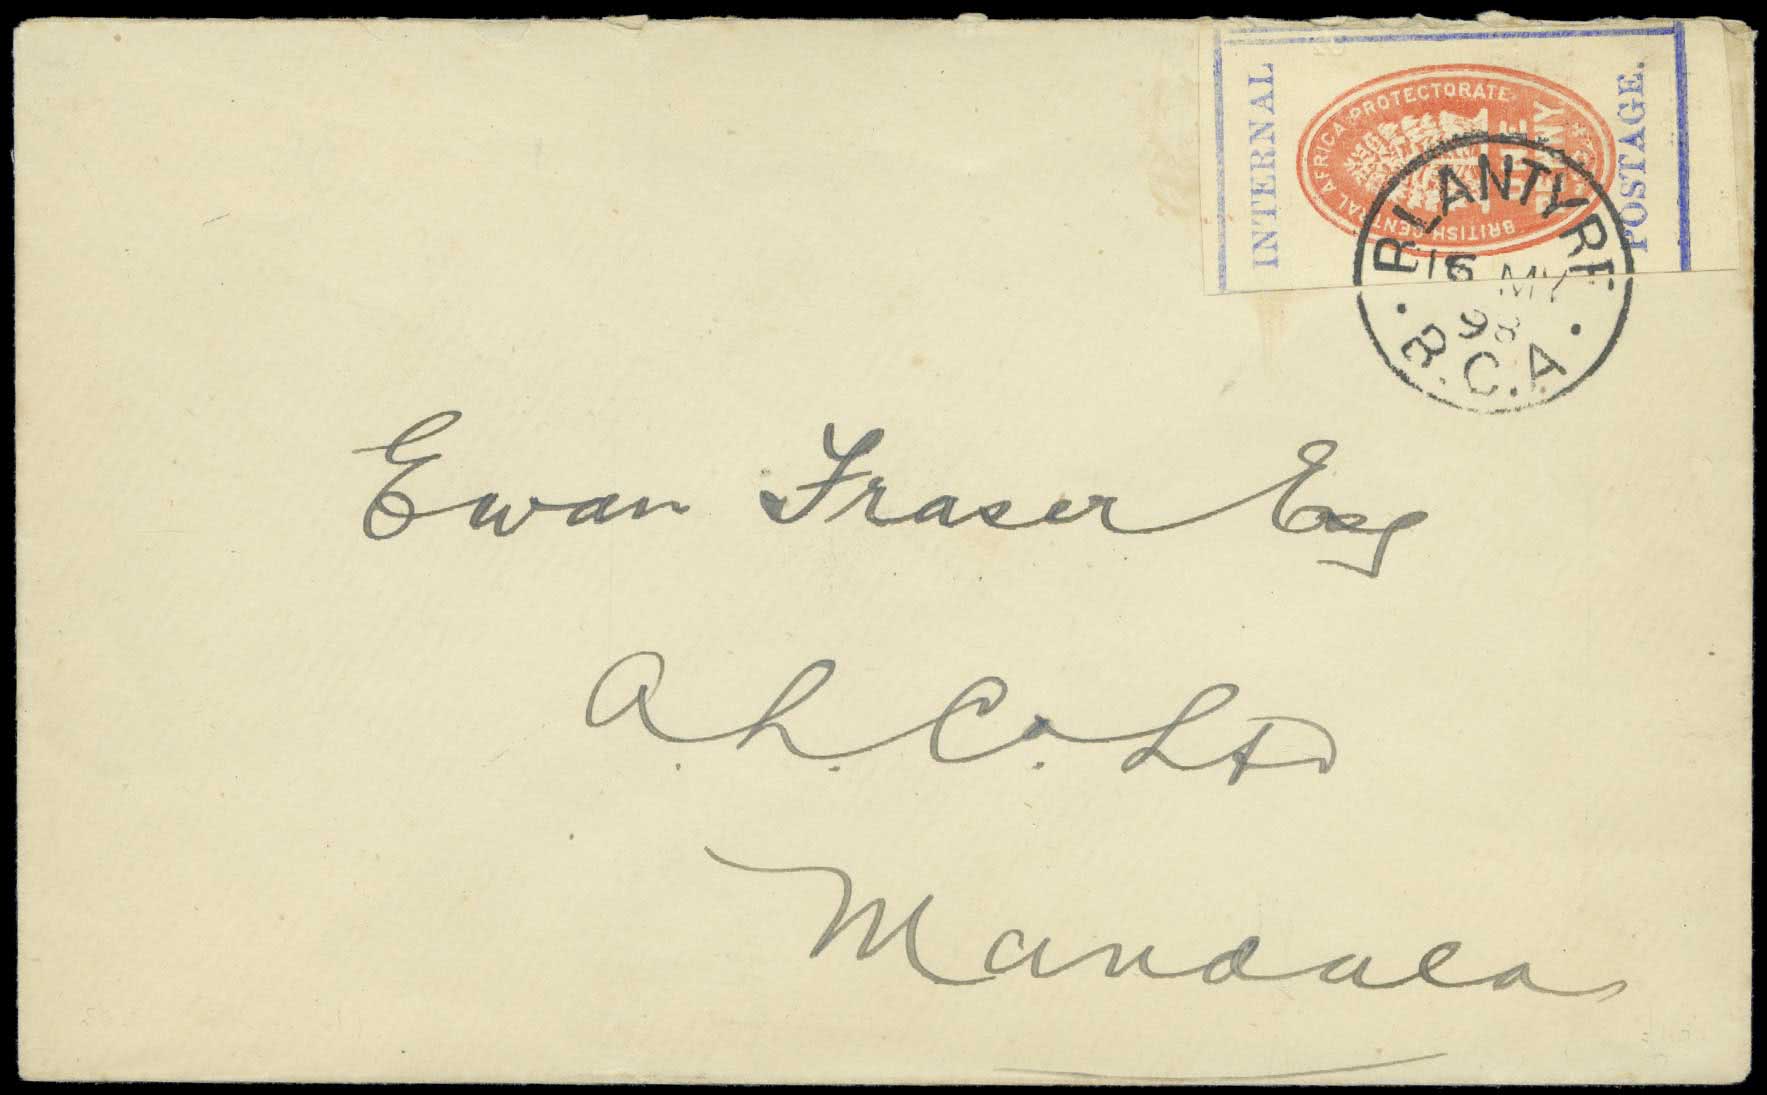 INTERNAL
POSTAGE.
BRITISH CENTRAL AFRICA PROTECTORATE
ONE
PENNY
BLANTYRE
16 MY
98
B.C.A.
Ewan Fraser Esq
A. L. Co. Ltd
Mandala